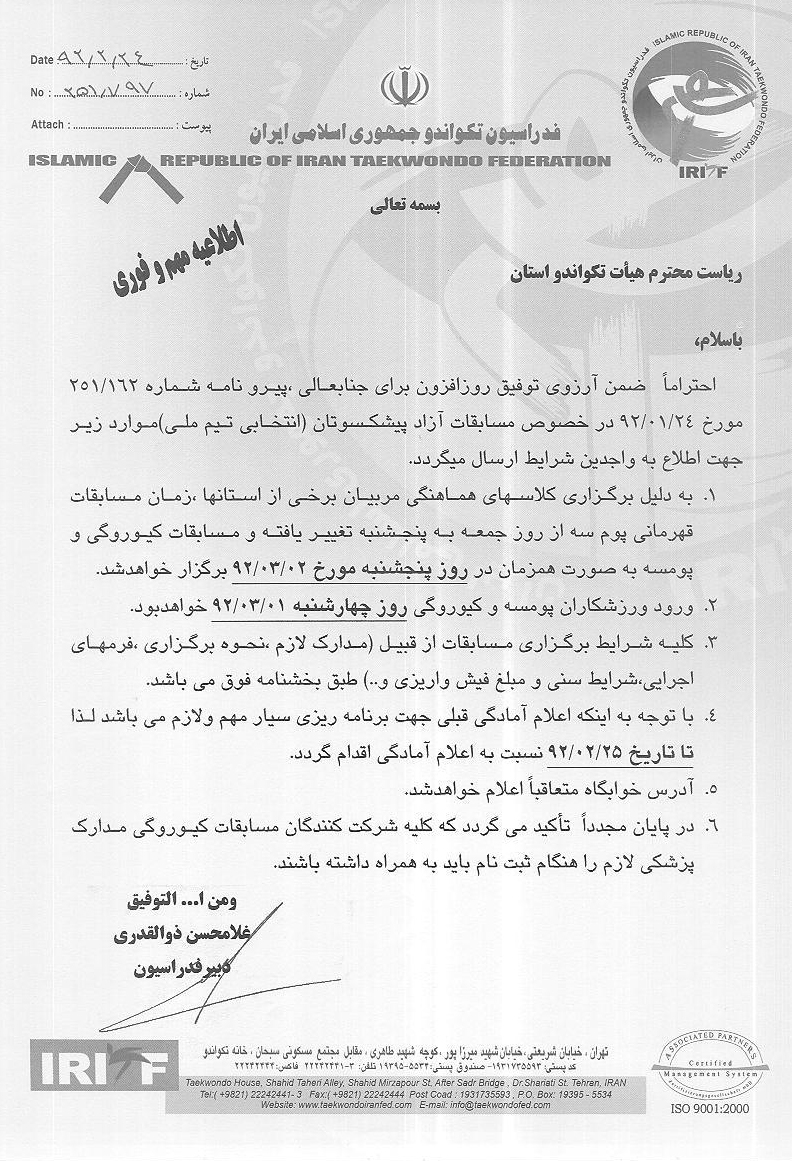 Date : ۹۲/۲/۲٤ تاریخ :
No : ۲۵۱/۷۹۷ شماره :
Attach : پیوست :
ISLAMIC REPUBLIC OF IRAN TAEKWONDO FEDERATION
فدراسیون تکواندو جمهوری اسلامی ایران
IRITF
فدراسیون تکواندو جمهوری اسلامی ایران
ISLAMIC REPUBLIC OF IRAN TAEKWONDO FEDERATION
بسمه تعالی
اطلاعیه مهم و فوری
ریاست محترم هیأت تکواندو استان
باسلام،
احتراماً ضمن آرزوی توفیق روزافزون برای جنابعالی ،پیرو نامه شماره ۲۵۱/۱٦۲
مورخ ۹۲/۰۱/۲٤ در خصوص مسابقات آزاد پیشکسوتان (انتخابی تیم ملی)موارد زیر
جهت اطلاع به واجدین شرایط ارسال میگردد.
۱. به دلیل برگزاری کلاسهای هماهنگی مربیان برخی از استانها ،زمان مسابقات
قهرمانی پوم سه از روز جمعه به پنجشنبه تغییر یافته و مسابقات کیوروگی و
پومسه به صورت همزمان در روز پنجشنبه مورخ ۹۲/۰۳/۰۲ برگزار خواهدشد.
۲. ورود ورزشکاران پومسه و کیوروگی روز چهارشنبه ۹۲/۰۳/۰۱ خواهدبود.
۳. کلیه شرایط برگزاری مسابقات از قبیل (مدارک لازم ،نحوه برگزاری ،فرمهای
اجرایی،شرایط سنی و مبلغ فیش واریزی و..) طبق بخشنامه فوق می باشد.
٤. با توجه به اینکه اعلام آمادگی قبلی جهت برنامه ریزی سیار مهم ولازم می باشد لذا
تا تاریخ ۹۲/۰۲/۲۵ نسبت به اعلام آمادگی اقدام گردد.
۵. آدرس خوابگاه متعاقباً اعلام خواهدشد.
٦. در پایان مجدداً تأکید می گردد که کلیه شرکت کنندگان مسابقات کیوروگی مدارک
پزشکی لازم را هنگام ثبت نام باید به همراه داشته باشند.
ومن ا... التوفیق
غلامحسن ذوالقدری
دبیرفدراسیون
IRITF
تهران، خیابان شریعتی،خیابان شهید میرزا پور، کوچه شهید طاهری ، مقابل مجتمع مسکونی سبحان ، خانه تکواندو
کد پستی: ۱۹۳۱۷۳۵۵۹۳- صندوق پستی:۵۵۳۴-۱۹۳۹۵ تلفن: ۳-۲۲۲۴۲۴۴۱ فاکس:۲۲۲۴۲۴۴۴
Taekwondo House, Shahid Taheri Alley, Shahid Mirzapour St, After Sadr Bridge , Dr.Shariati St. Tehran, IRAN
Tel:( +9821) 22242441- 3 Fax:( +9821) 22242444 Post Coad : 1931735593 , P.O. Box: 19395 - 5534
Website: www.taekwondoiranfed.com E-mail: info@taekwondofed.com
ASSOCIATED PARTNERS
Certified
Management System
ISO 9001:2000